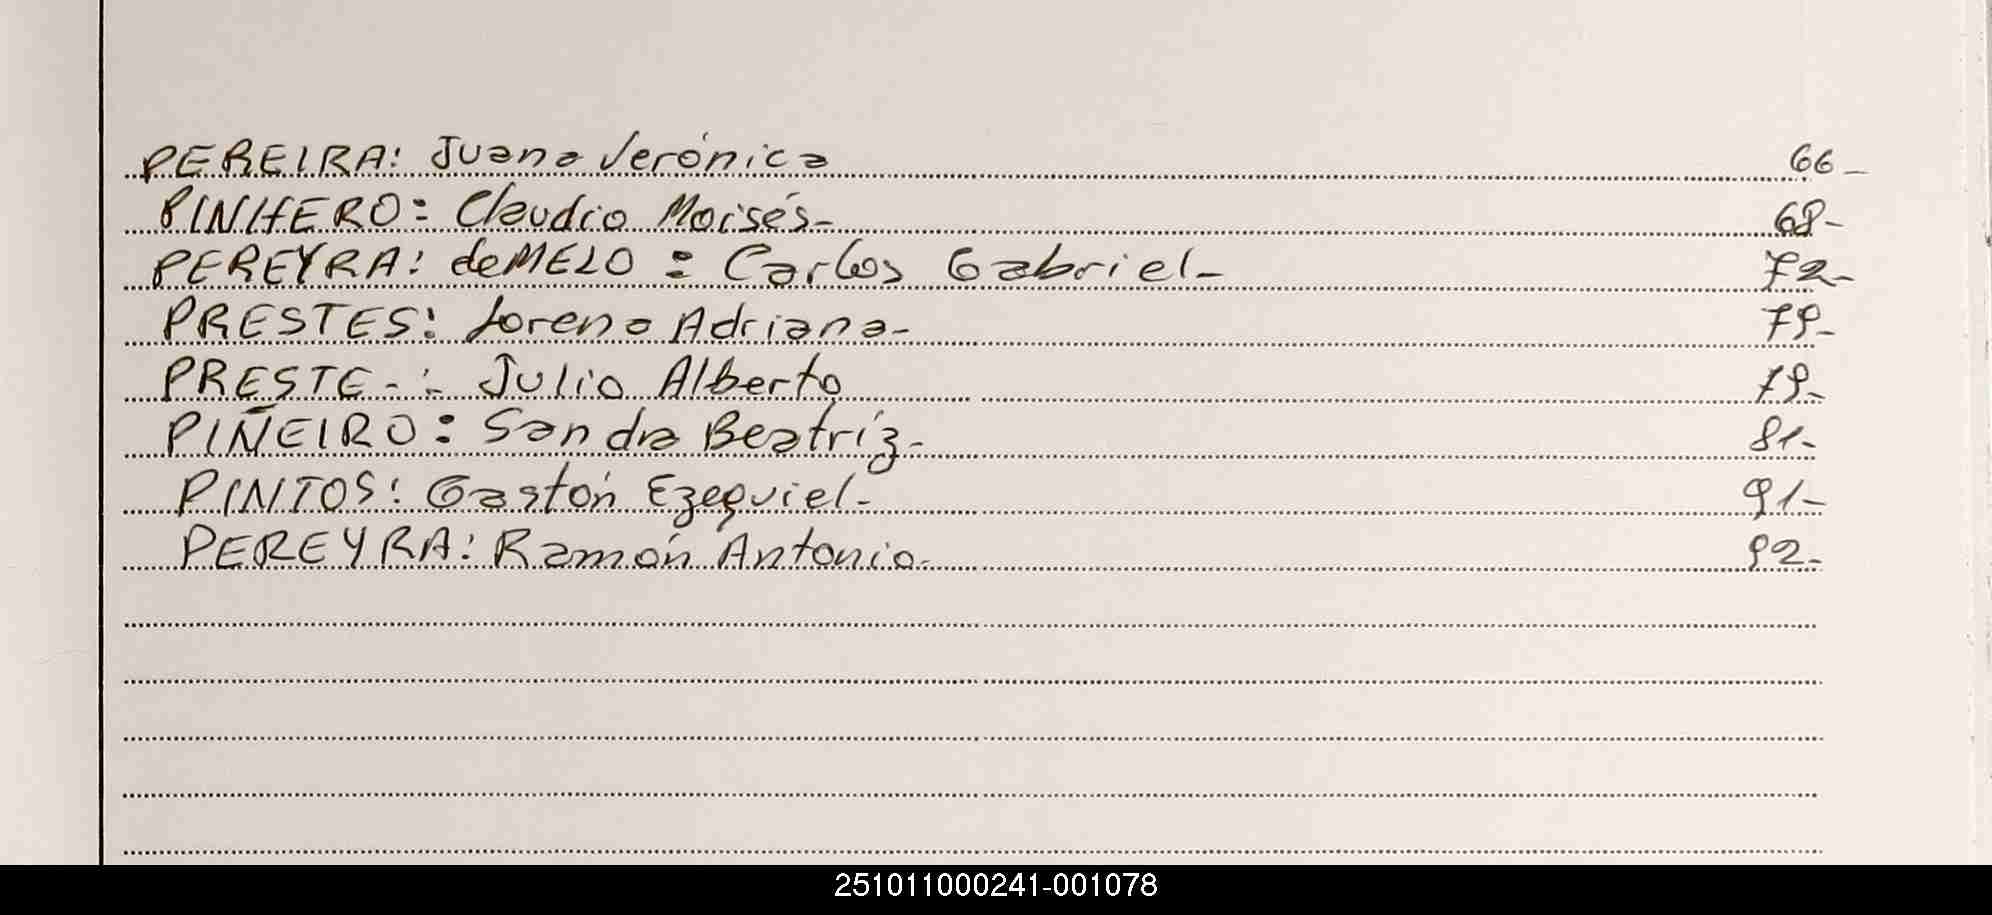 PEREIRA: Juana Verónica 66-
PINHERO: Claudio Moisés- 68-
PEREYRA: deMELO : Carlos Gabriel- 72-
PRESTES: Lorena Adriana- 79-
PRESTE-: Julio Alberto 79-
PIÑEIRO: Sandra Beatríz- 81-
PINTOS: Gastón Ezequiel- 91-
PEREYRA: Ramón Antonio- 92-
251011000241-001078